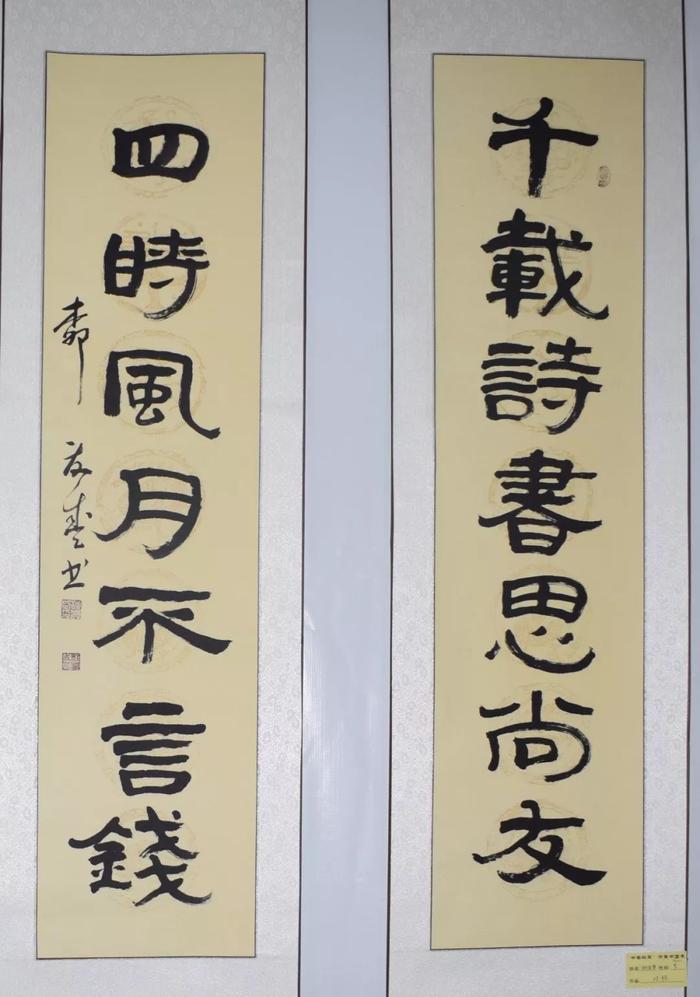 千載詩書思尚友
四時風月不言錢